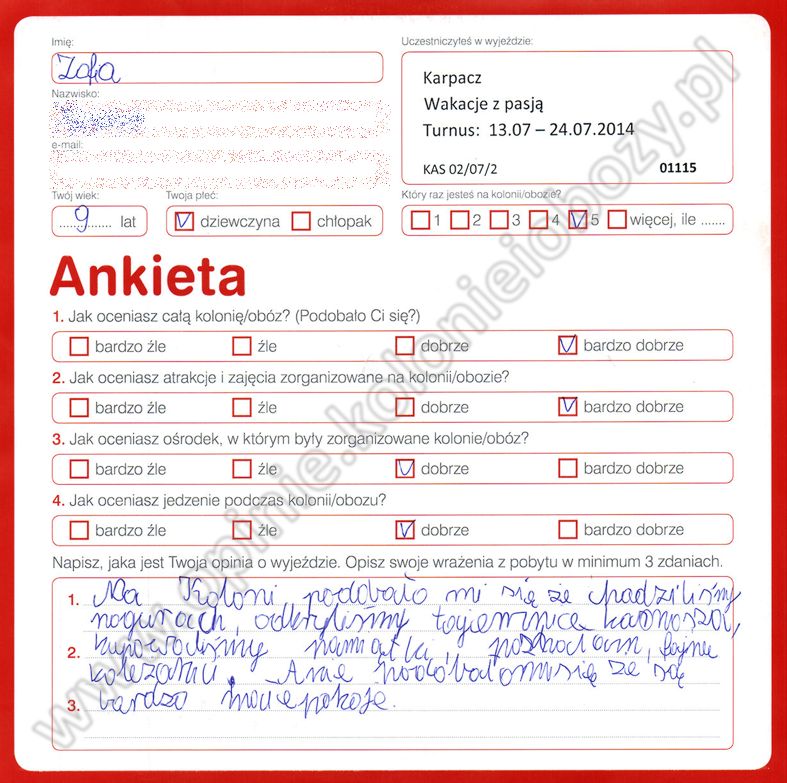 Imię:
Zofia
Nazwisko:
e-mail:
Twój wiek:
9 lat
Twoja płeć:
dziewczyna chłopak
Uczestniczyłeś w wyjeździe:
Karpacz
Wakacje z pasją
Turnus: 13.07 – 24.07.2014
KAS 02/07/2 01115
Który raz jesteś na kolonii/obozie?
1 2 3 4 5 więcej, ile .......
Ankieta
1. Jak oceniasz całą kolonię/obóz? (Podobało Ci się?)
bardzo źle źle dobrze bardzo dobrze
2. Jak oceniasz atrakcje i zajęcia zorganizowane na kolonii/obozie?
bardzo źle źle dobrze bardzo dobrze
3. Jak oceniasz ośrodek, w którym były zorganizowane kolonie/obóz?
bardzo źle źle dobrze bardzo dobrze
4. Jak oceniasz jedzenie podczas kolonii/obozu?
bardzo źle źle dobrze bardzo dobrze
Napisz, jaka jest Twoja opinia o wyjeździe. Opisz swoje wrażenia z pobytu w minimum 3 zdaniach.
1. Na Koloni podobało mi się że chadziliśmy
nogurach, odkryliśmy tajemnice
2. pamiątki, fajne
koleżanki. Anie podobałomisię że są
3. bardzo małe pokoje.
www.opinie.kolonieiobozy.pl